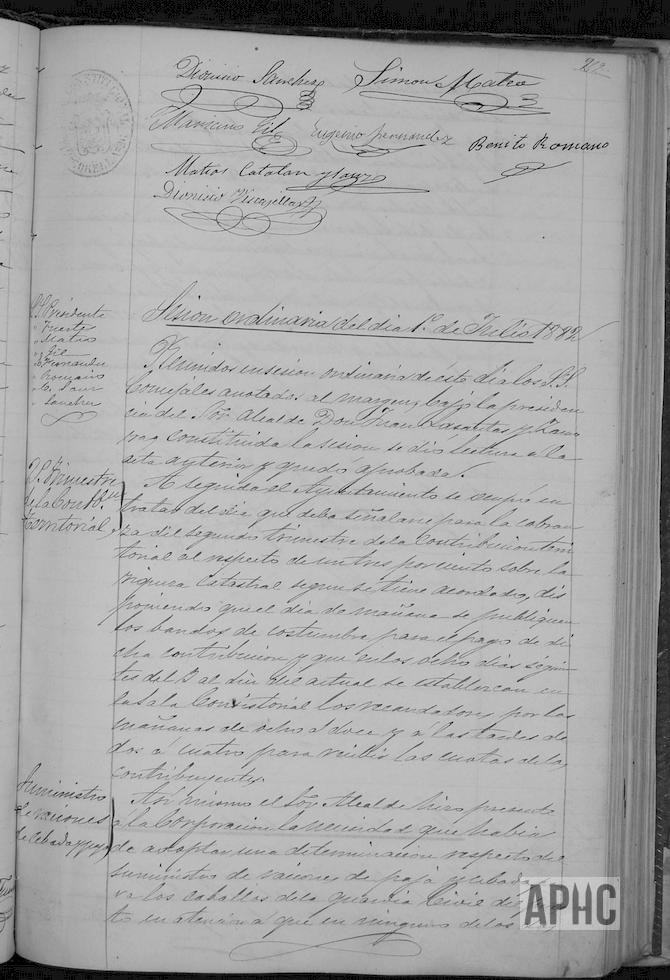 212
Dionisio Sanchez Simon Mateo
Mariano Gil Eugenio Fernandez Benito Romano
Matias Catalan y Sanz
Dionisio
Sesion ordinaria del dia 1º de Julio 1892
S.S. Presidente
" Fuerte
" Mateo
" Gil
" Fernandez
" Romano
" C. Sanz
" Sanchez
Reunidos en sesion ordinaria de este dia los S.S.
Concejales anotados al margen, bajo la presiden
cia del Sor. Alcalde Don Juan Lasantas y Zamo
rra constituida la sesion se dió lectura a la
acta anterior y quedó aprobada.
2º Trimestre
de la Contbn.
Territorial
A seguida el Ayuntamiento se ocupó en
tratar del dia que deba señalarse para la cobran
za del segundo trimestre de la Contribucion terri
torial al respecto de un tres por ciento sobre la
riqueza Catastral segun se tiene acordado, dis
poniendo que el dia de mañana se publiquen
los bandos de costumbre para el pago de di
cha contribucion y que en los ocho dias siguien
tes del 3 al diez del actual se establezcan en
la Sala Consistorial los recaudadores por las
mañanas de ocho á doce y a las tardes de
dos á cuatro para recibir las cuotas de los
contribuyentes.
Suministro
de raciones
de Cebada y paja
Asi mismo el Sor. Alcalde hizo presente
á la Corporacion la necesidad que habia
de adoptar una determinacion respecto del
suministro de raciones de paja y cebada
los caballos de la Guardia Civil
to en atencion a que en ninguno de los
APHC